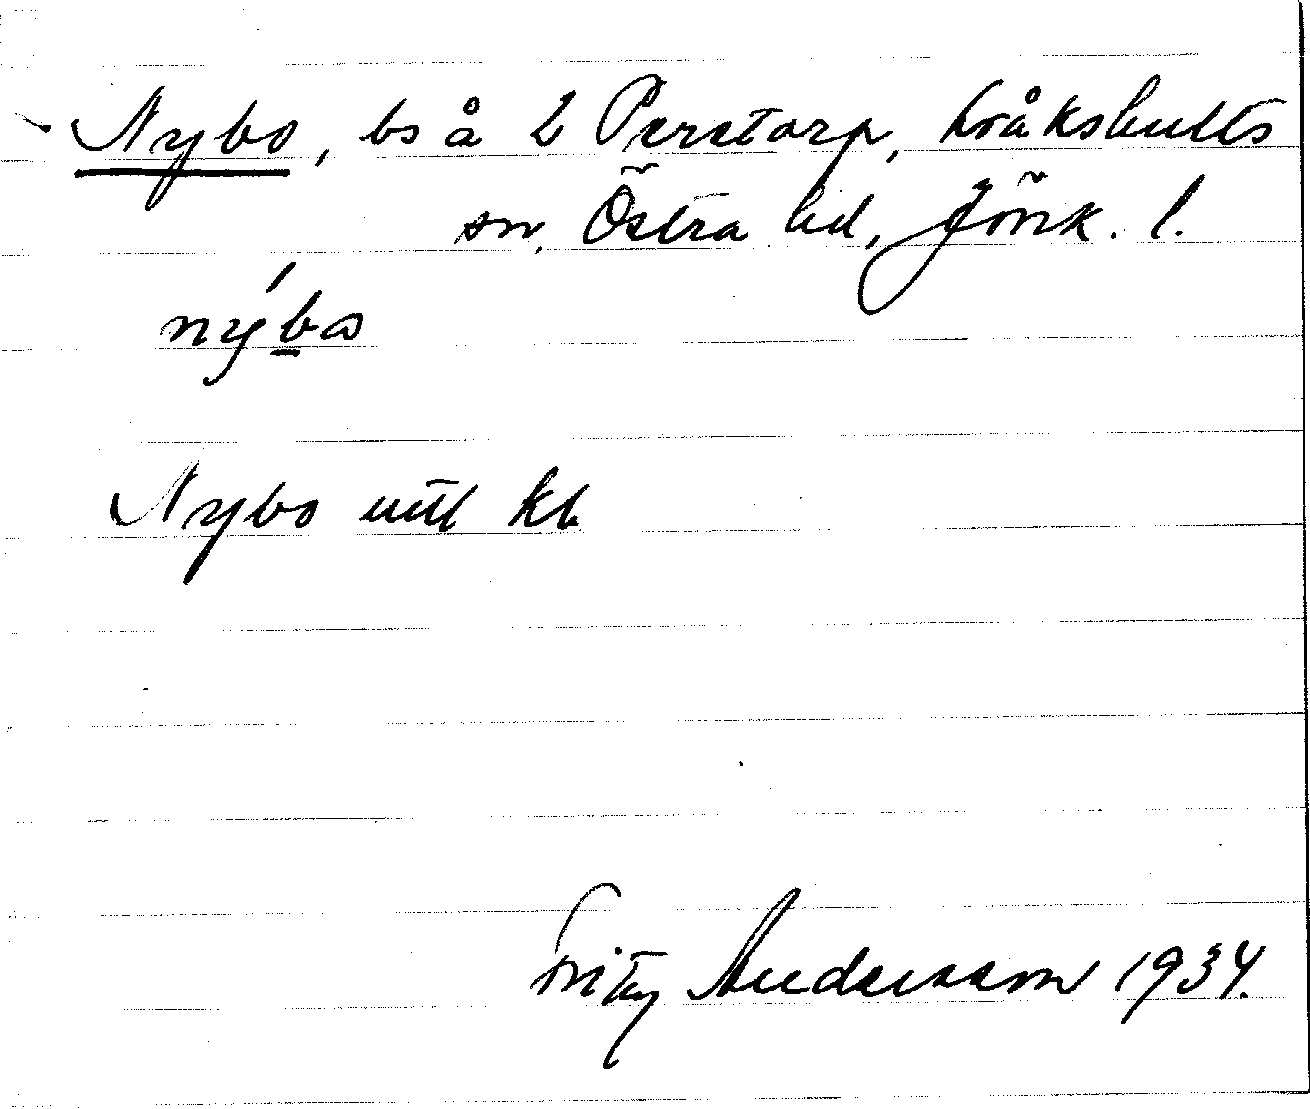 Nybo, bs å 2 Perstorp, Kråkshults
sn, Östra hd, Jönk. l.
nýbo
Nybo uttl kb
Fritz Andersson 1934.